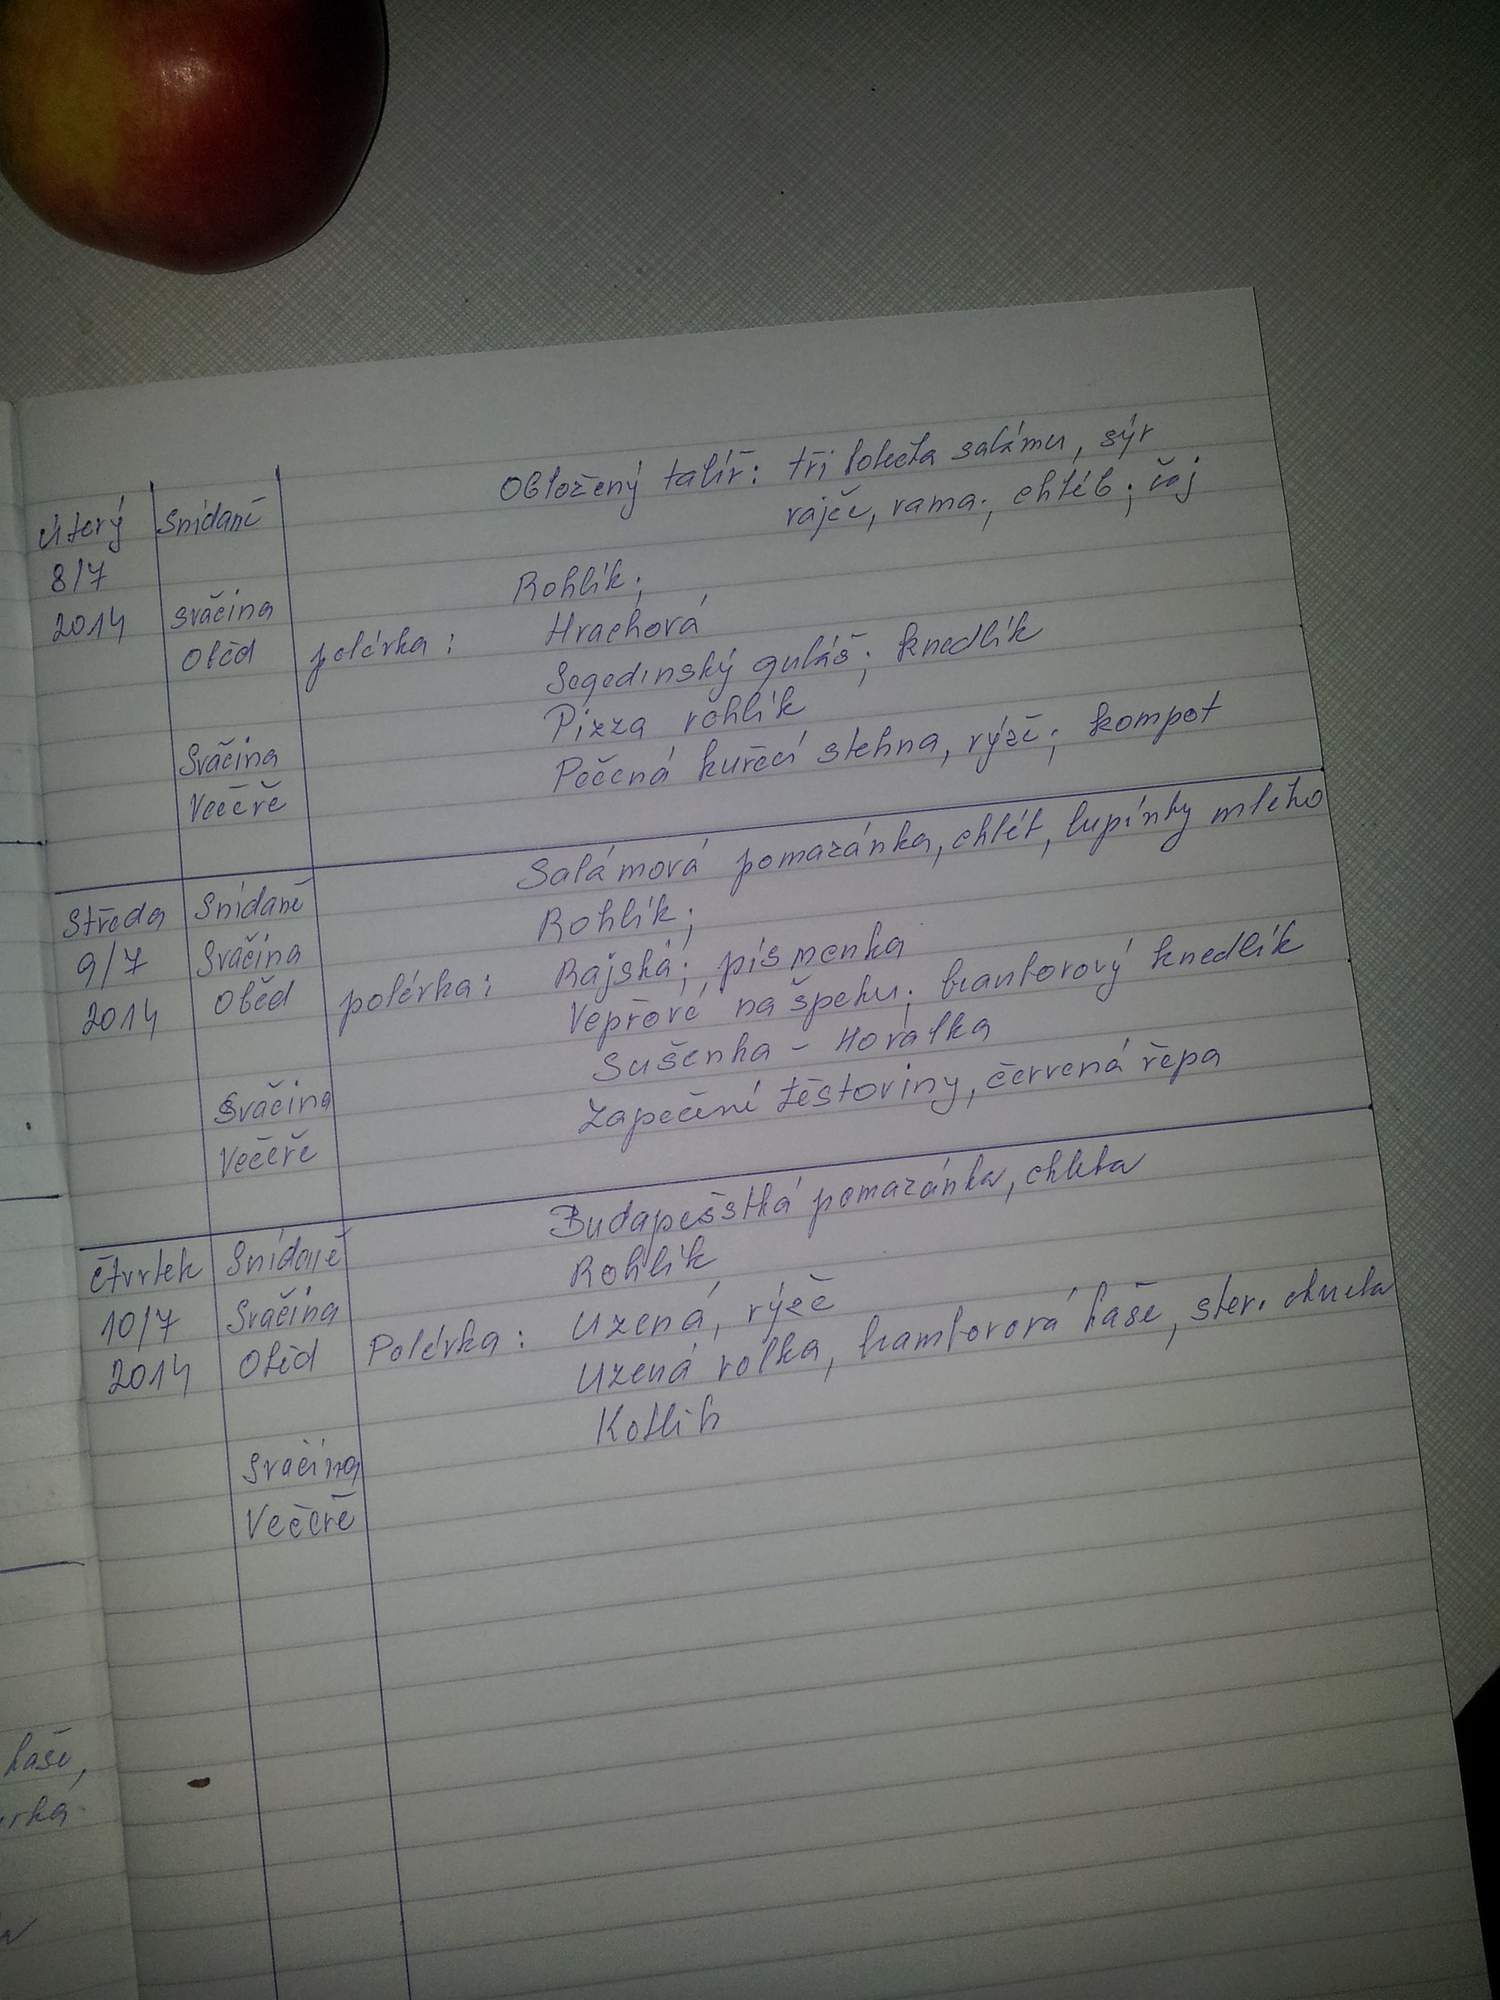 Obložený talíř: tři kolečka salámu, sýr
Úterý Snídaně rajče, rama; chléb; čaj
8/7
Rohlík;
2014 Svačina
Oběd polévka: Hrachová
Segedínský guláš; knedlík
Pizza rohlík
Svačina
Večeře Pečená kuřecí stehna, rýže; kompot
Salámová pomazánka, chléb, lupínky mléko
Středa Snídaně
Rohlík;
9/7 Svačina
2014 Oběd polévka: Rajská; písmenka
Vepřové na špeku; bramborový knedlík
Sušenka - Horalka
Svačina
Večeře Zapečené těstoviny, červená řepa
Budapešťská pomazánka, chleba
Čtvrtek Snídaně
Rohlík
10/7 Svačina
2014 Oběd Polévka: Uzená, rýže
Uzená rolka, bramborová kaše, ster. okurka
Kotlík
Svačina
Večeře
kaše,